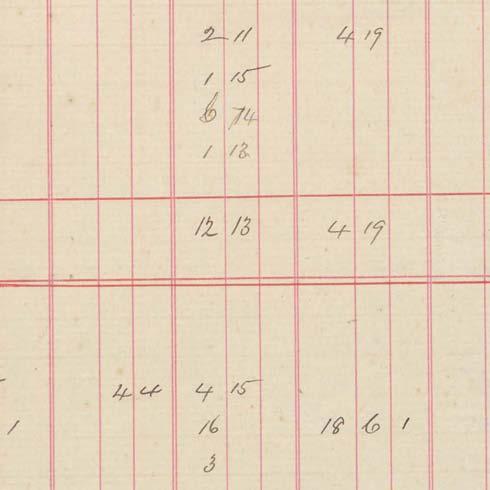 2 11 4 19
1 15
6 14
1 13
12 13 4 19
4 4 4 15
1 16 18 6 1
3